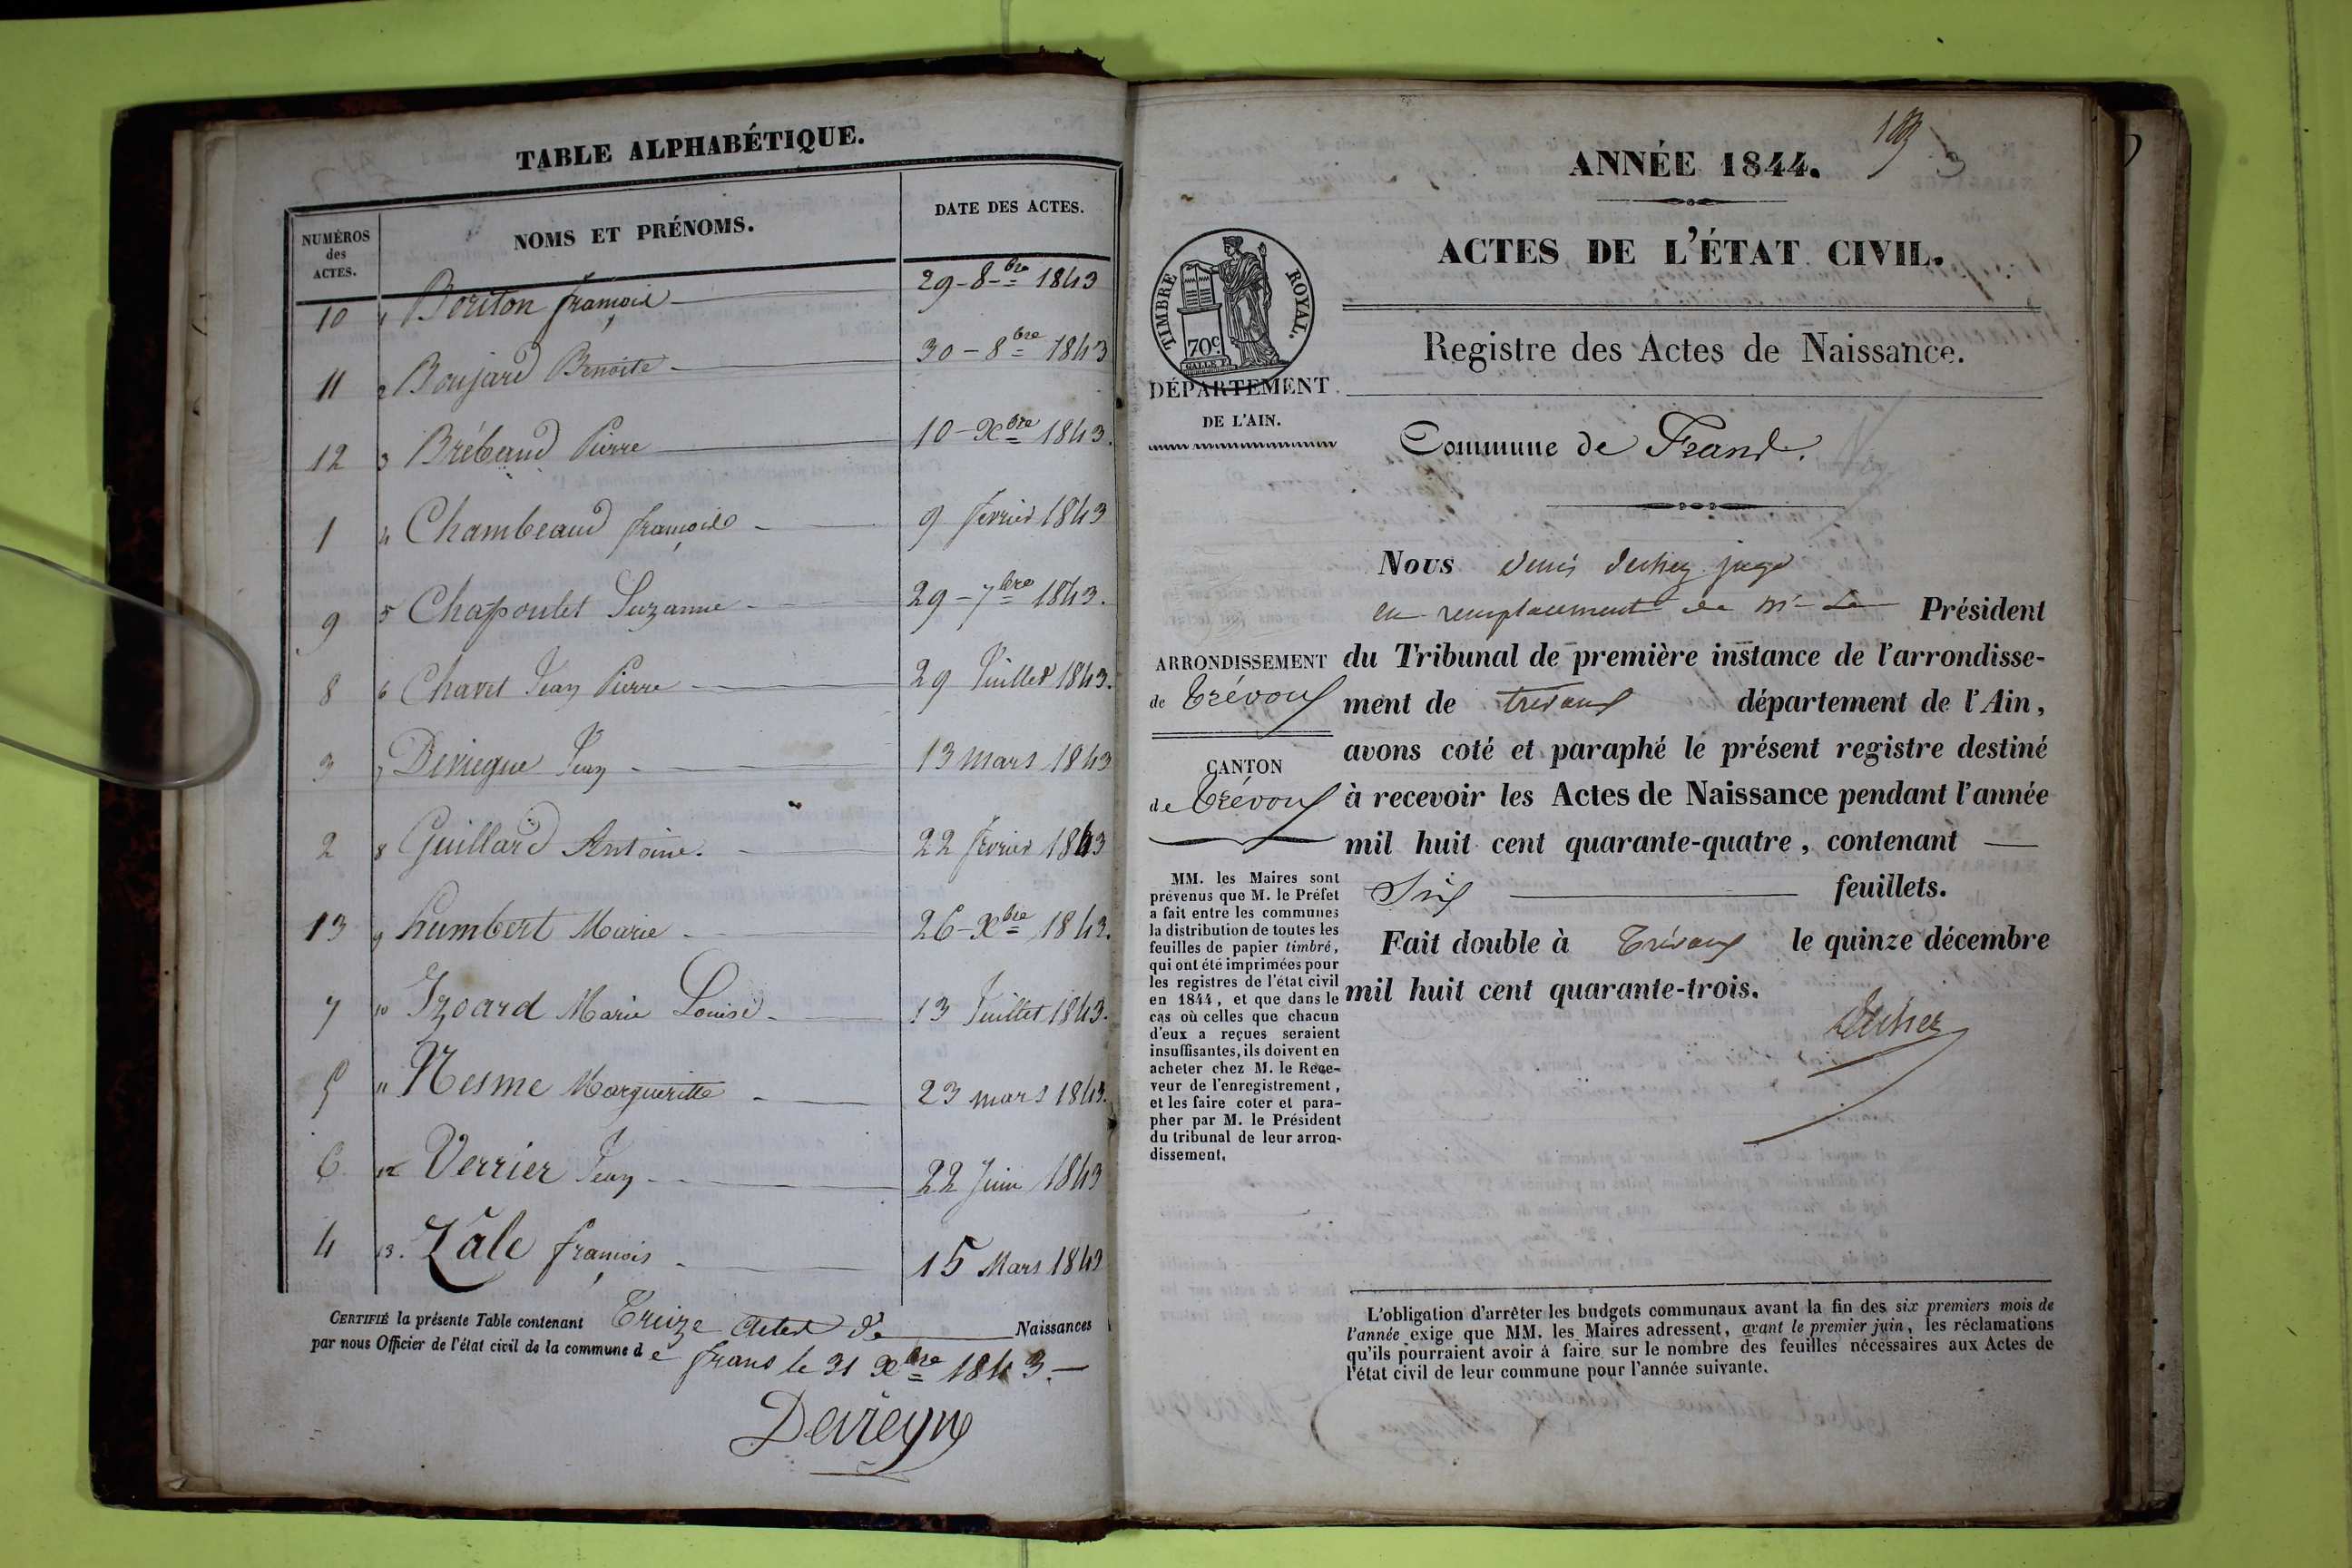 TABLE ALPHABÉTIQUE.
NUMÉROS
des
ACTES.
NOMS ET PRÉNOMS.
DATE DES ACTES.
10 1 Boriton françois 29-8bre 1843
11 2 Boujard Benoite 30-8bre 1843
12 3 Brébaud Pierre 10-Xbre 1843.
1 4 Chambeaud françoise 9 février 1843
9 5 Chapoulet Suzanne 29-7bre 1843.
8 6 Chavet Jean Pierre 29 Juillet 1843.
3 7 Jean 13 mars 1843
2 8 Guillard Antoine. 22 février 1843
13 9 humbert Marie 26-Xbre 1843.
7 10 Izoard Marie Louise 13 Juillet 1843.
5 11 Nesme Margueritte 23 mars 1843.
6 12 Verrier Jean 22 Juin 1843
4 13. Zâle françois 15 Mars 1843
CERTIFIÉ la présente Table contenant Treize actes de Naissances
par nous Officier de l'état civil de la commune de frans le 31 Xbre 1843.
ANNÉE 1844.
ACTES DE L'ÉTAT CIVIL.
TIMBRE ROYAL.
70c
DÉPARTEMENT
DE L'AIN.
Registre des Actes de Naissance.
Commune de Frans.
ARRONDISSEMENT
de Trévoux
CANTON
de Trévoux
MM. les Maires sont
prévenus que M. le Préfet
a fait entre les communes
la distribution de toutes les
feuilles de papier timbré,
qui ont été imprimées pour
les registres de l'état civil
en 1844, et que dans le
cas où celles que chacun
d'eux a reçues seraient
insuffisantes, ils doivent en
acheter chez M. le Rece-
veur de l'enregistrement,
et les faire coter et para-
pher par M. le Président
du tribunal de leur arron-
dissement.
Nous Denis Duhez juge
en remplacement de Mr Le Président
du Tribunal de première instance de l'arrondisse-
ment de trévoux département de l'Ain,
avons coté et paraphé le présent registre destiné
à recevoir les Actes de Naissance pendant l'année
mil huit cent quarante-quatre, contenant
Six feuillets.
Fait double à Trévoux le quinze décembre
mil huit cent quarante-trois.
L'obligation d'arrêter les budgets communaux avant la fin des six premiers mois de
l'année exige que MM. les Maires adressent, avant le premier juin, les réclamations
qu'ils pourraient avoir à faire sur le nombre des feuilles nécessaires aux Actes de
l'état civil de leur commune pour l'année suivante.